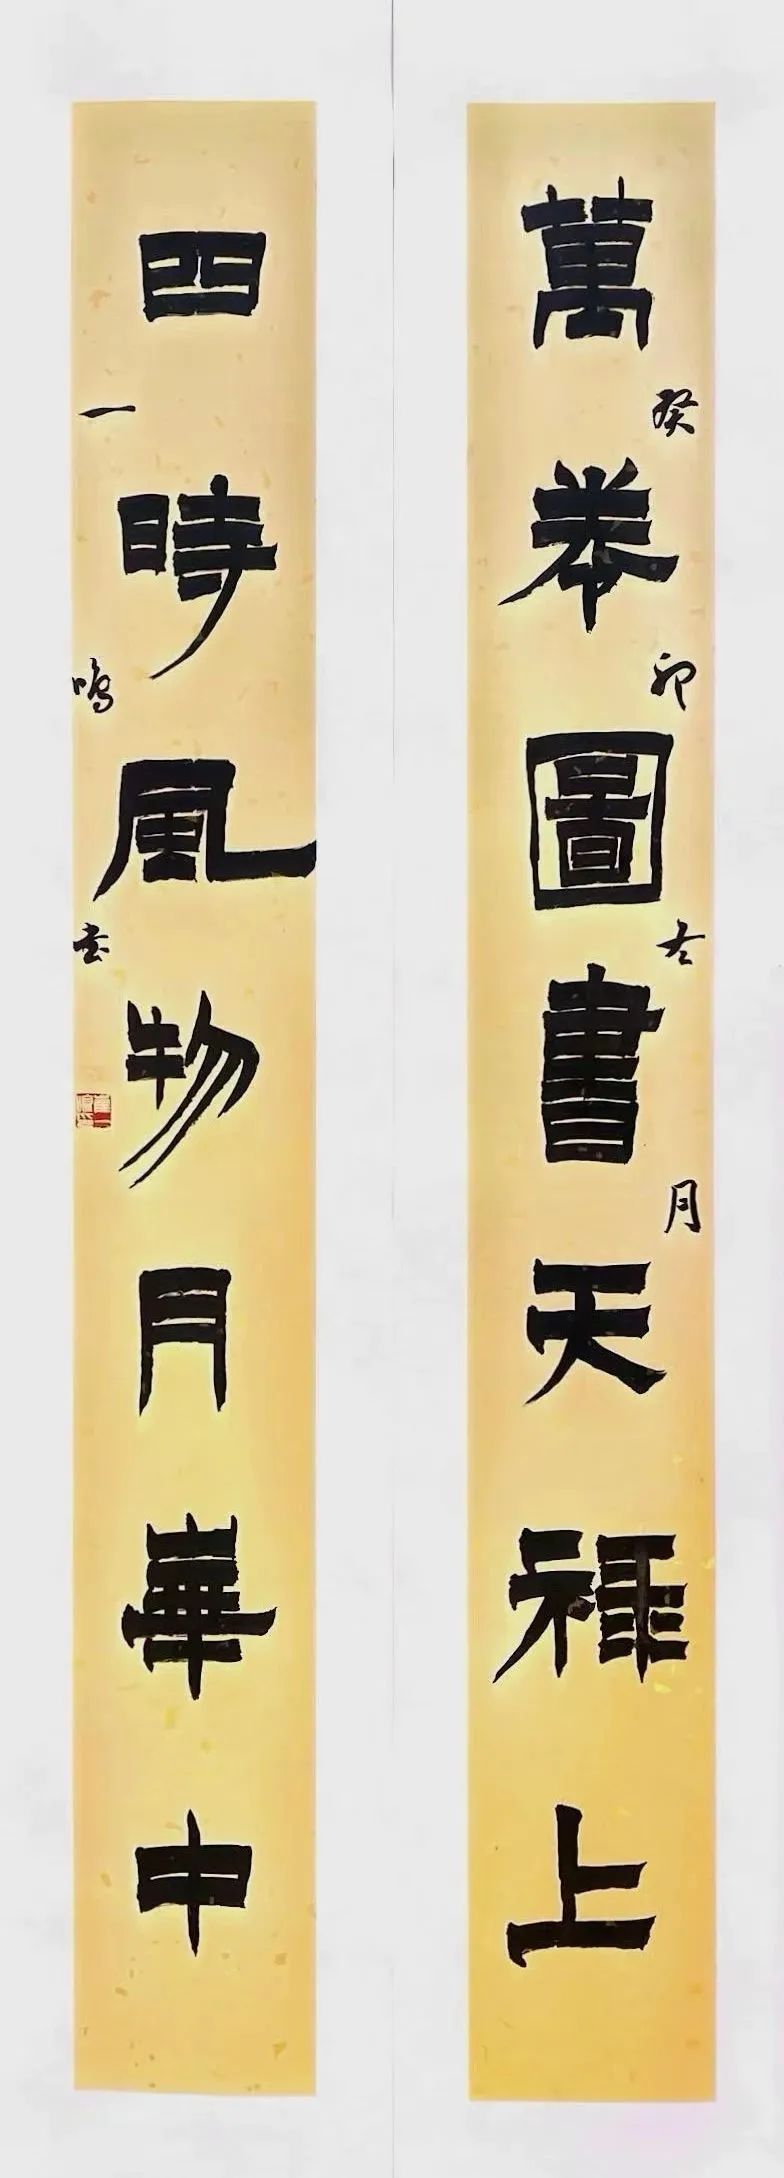 萬卷圖書天祿上
癸卯冬月
四時風物月華中
一鳴書